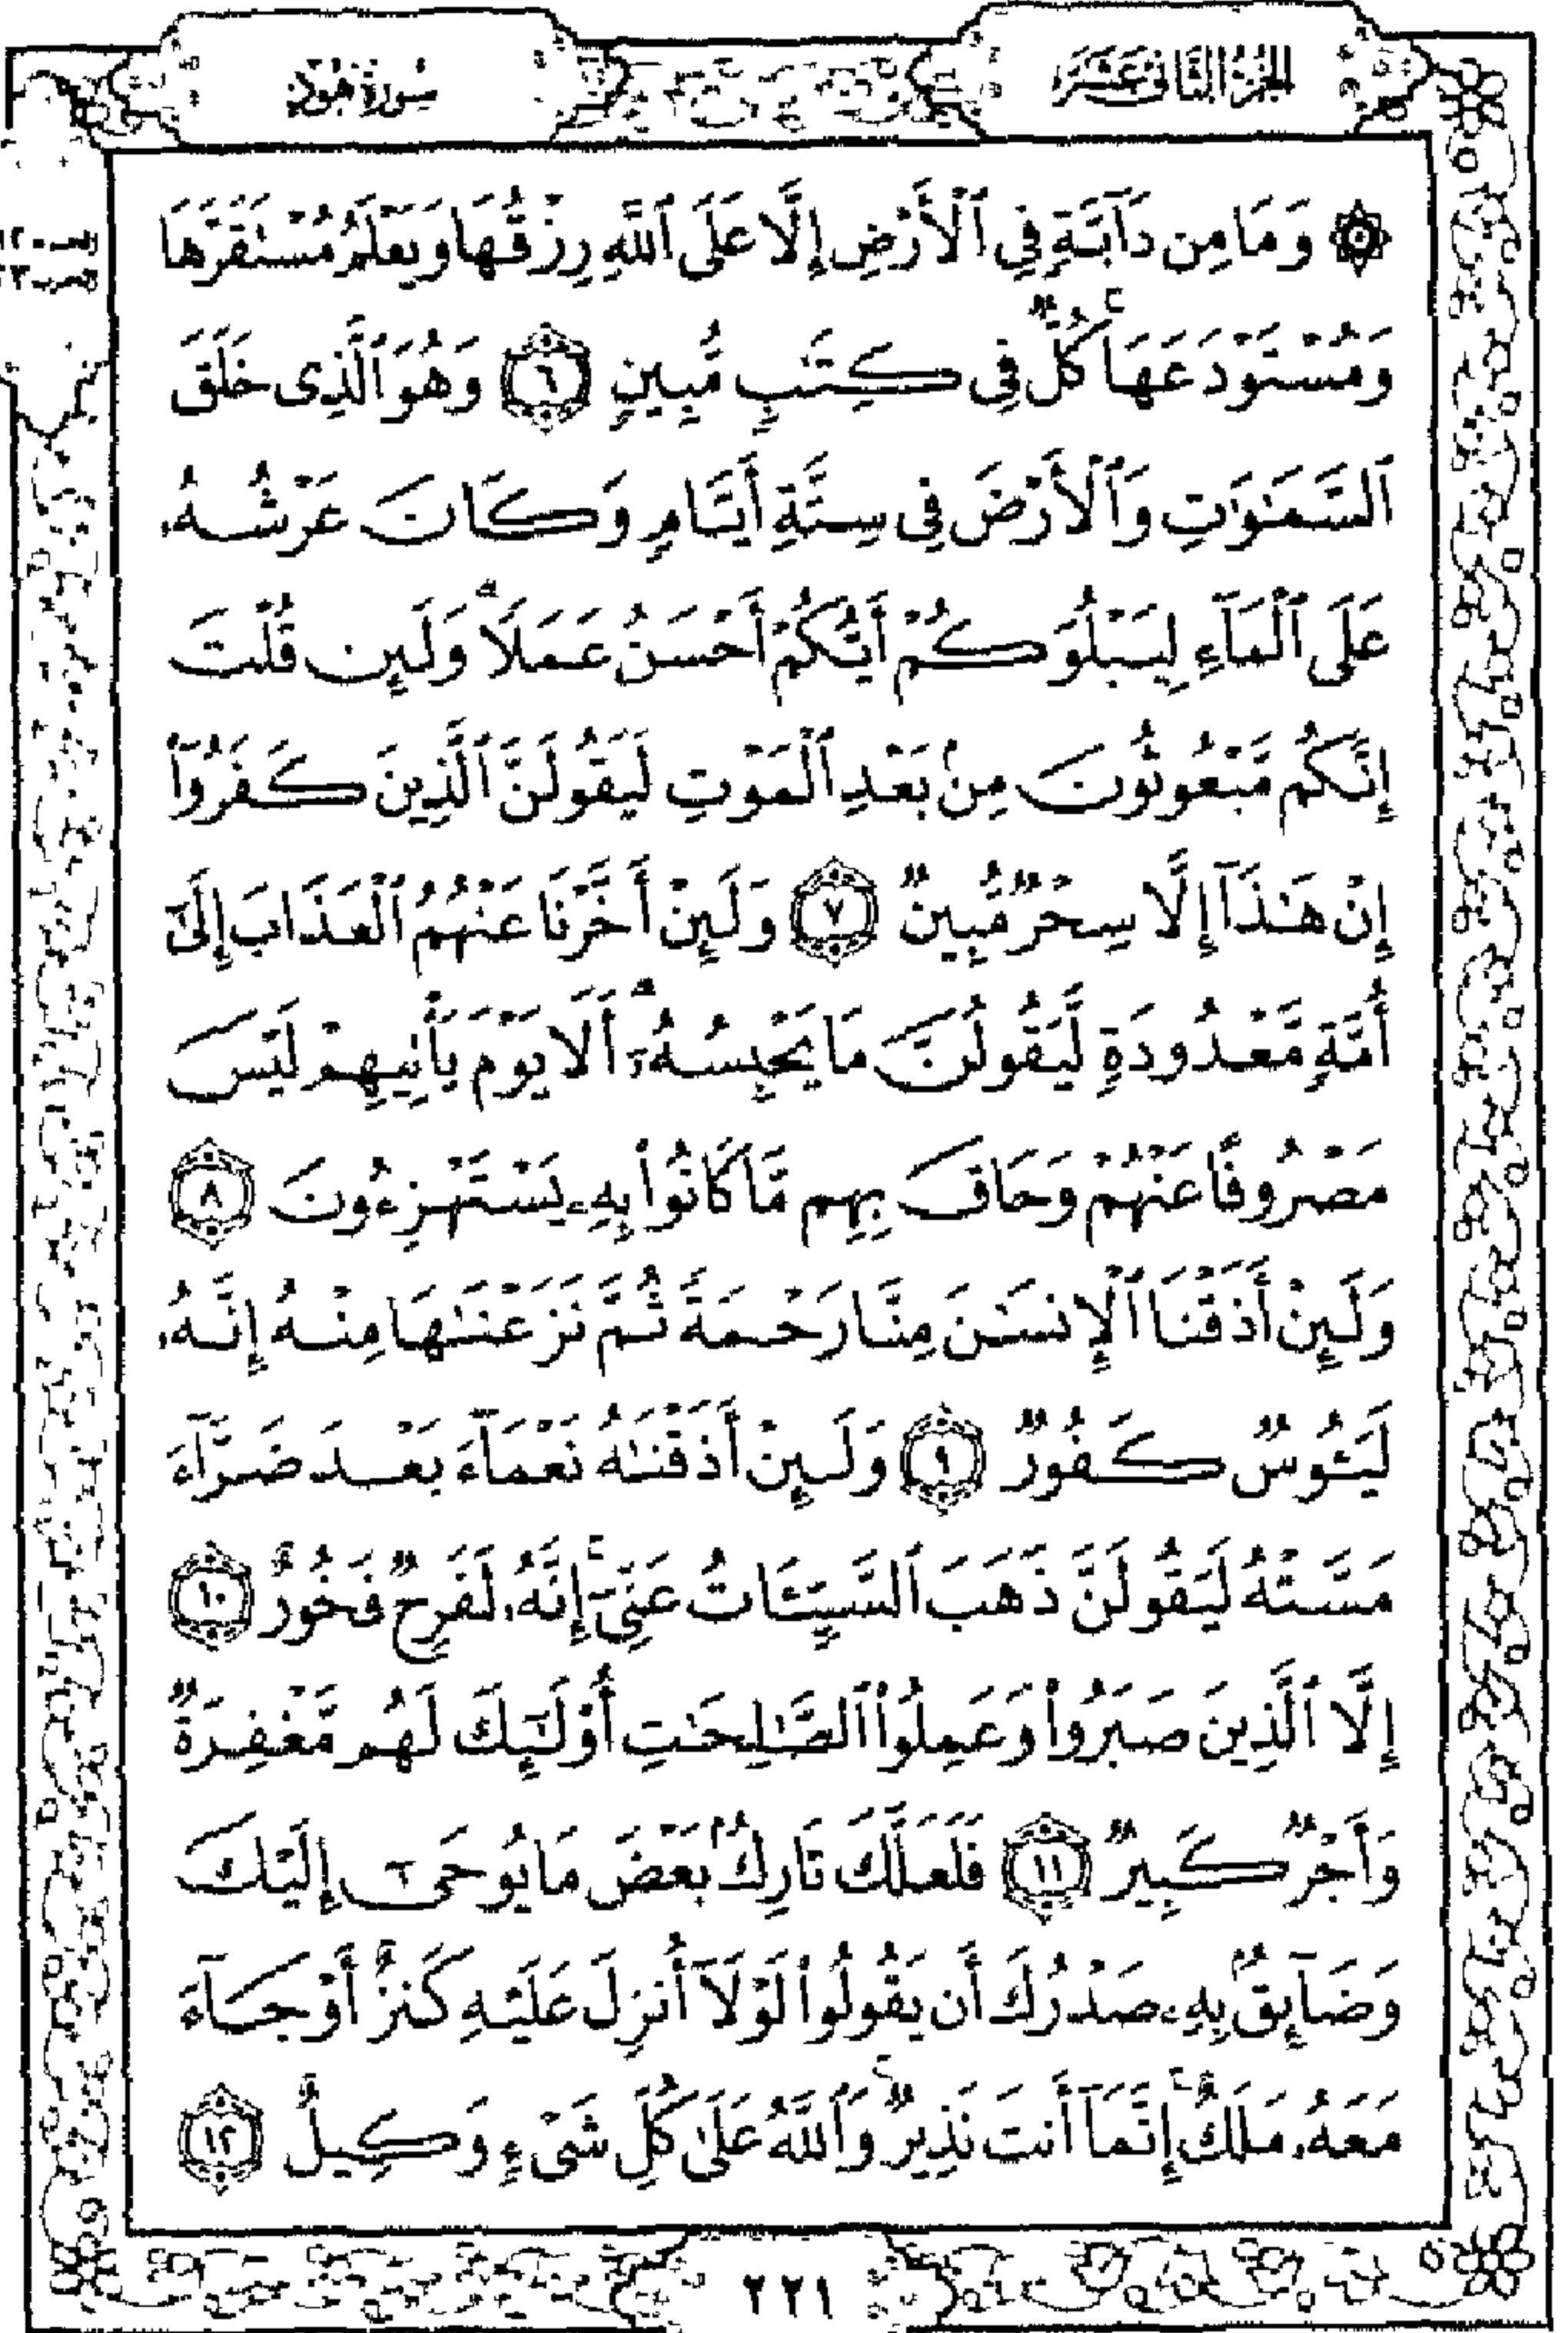 الجزء الثاني عشر
سورة هود
۞ وَمَا مِن دَآبَّةٍ فِي ٱلۡأَرۡضِ إِلَّا عَلَى ٱللَّهِ رِزۡقُهَا وَيَعۡلَمُ مُسۡتَقَرَّهَا
وَمُسۡتَوۡدَعَهَاۚ كُلّٞ فِي كِتَٰبٖ مُّبِينٖ ٦ وَهُوَ ٱلَّذِي خَلَقَ
ٱلسَّمَٰوَٰتِ وَٱلۡأَرۡضَ فِي سِتَّةِ أَيَّامٖ وَكَانَ عَرۡشُهُۥ
عَلَى ٱلۡمَآءِ لِيَبۡلُوَكُمۡ أَيُّكُمۡ أَحۡسَنُ عَمَلٗاۗ وَلَئِن قُلۡتَ
إِنَّكُم مَّبۡعُوثُونَ مِنۢ بَعۡدِ ٱلۡمَوۡتِ لَيَقُولَنَّ ٱلَّذِينَ كَفَرُوٓاْ
إِنۡ هَٰذَآ إِلَّا سِحۡرٞ مُّبِينٞ ٧ وَلَئِنۡ أَخَّرۡنَا عَنۡهُمُ ٱلۡعَذَابَ إِلَىٰٓ
أُمَّةٖ مَّعۡدُودَةٖ لَّيَقُولُنَّ مَا يَحۡبِسُهُۥٓۗ أَلَا يَوۡمَ يَأۡتِيهِمۡ لَيۡسَ
مَصۡرُوفًا عَنۡهُمۡ وَحَاقَ بِهِم مَّا كَانُواْ بِهِۦ يَسۡتَهۡزِءُونَ ٨
وَلَئِنۡ أَذَقۡنَا ٱلۡإِنسَٰنَ مِنَّا رَحۡمَةٗ ثُمَّ نَزَعۡنَٰهَا مِنۡهُ إِنَّهُۥ
لَيَـُٔوسٞ كَفُورٞ ٩ وَلَئِنۡ أَذَقۡنَٰهُ نَعۡمَآءَ بَعۡدَ ضَرَّآءَ
مَسَّتۡهُ لَيَقُولَنَّ ذَهَبَ ٱلسَّيِّـَٔاتُ عَنِّيٓۚ إِنَّهُۥ لَفَرِحٞ فَخُورٌ ١٠
إِلَّا ٱلَّذِينَ صَبَرُواْ وَعَمِلُواْ ٱلصَّٰلِحَٰتِ أُوْلَٰٓئِكَ لَهُم مَّغۡفِرَةٞ
وَأَجۡرٞ كَبِيرٞ ١١ فَلَعَلَّكَ تَارِكُۢ بَعۡضَ مَا يُوحَىٰٓ إِلَيۡكَ
وَضَآئِقُۢ بِهِۦ صَدۡرُكَ أَن يَقُولُواْ لَوۡلَآ أُنزِلَ عَلَيۡهِ كَنزٌ أَوۡ جَآءَ
مَعَهُۥ مَلَكٌۚ إِنَّمَآ أَنتَ نَذِيرٞۚ وَٱللَّهُ عَلَىٰ كُلِّ شَيۡءٖ وَكِيلٌ ١٢
٢٢١